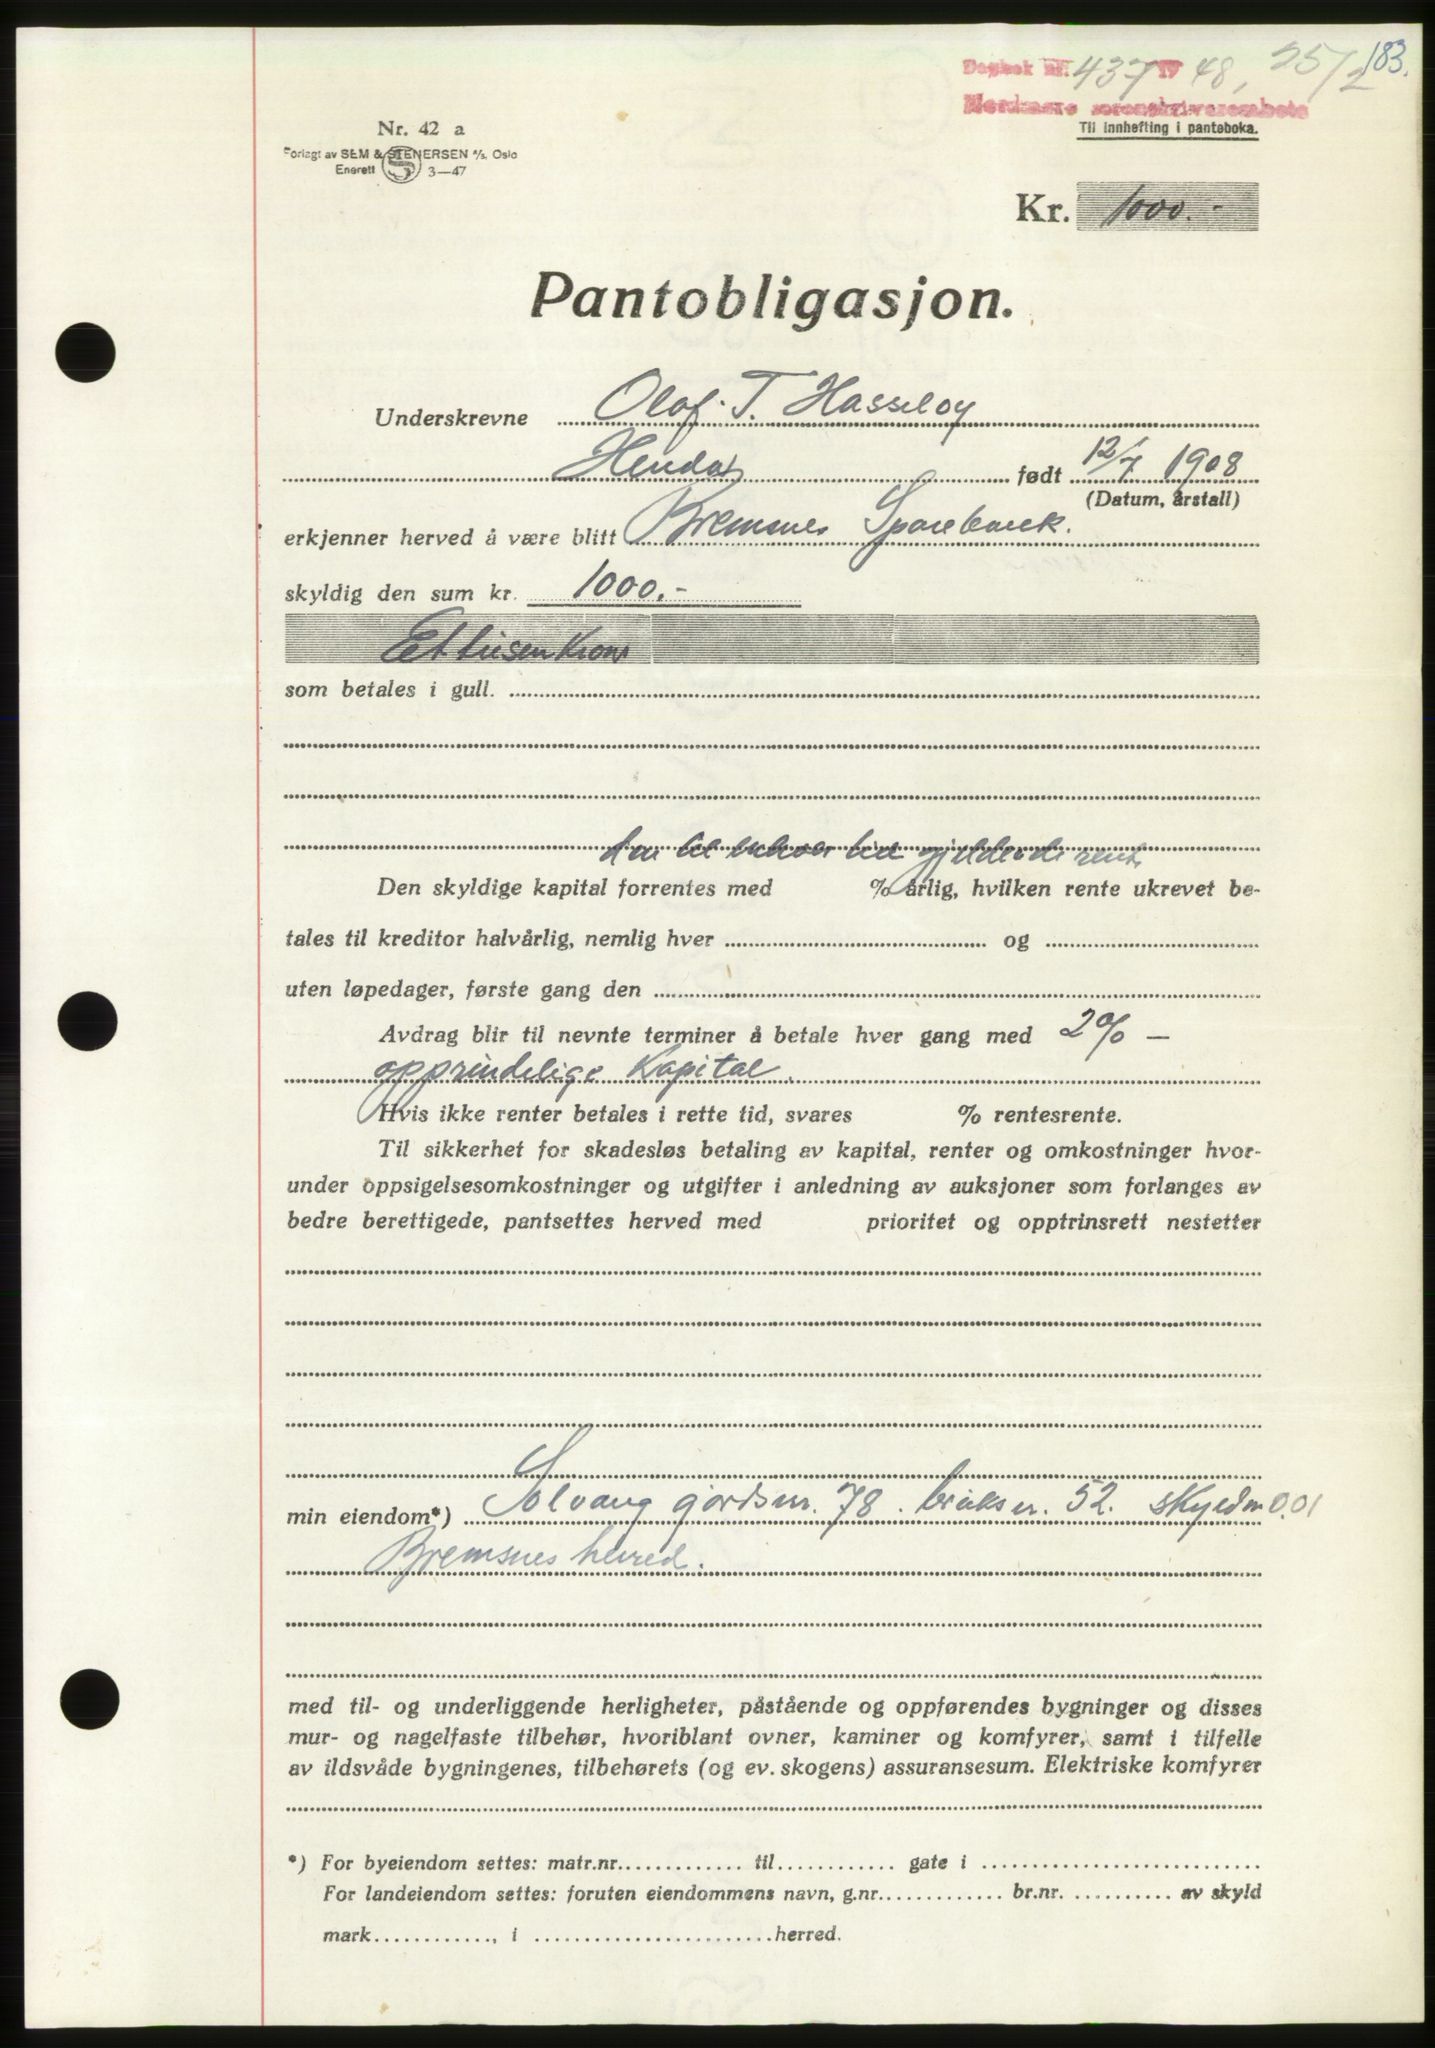 183.
Dagbok nr. 437 19 48, 25/2
Nordmøre sorenskriverembete
Til innhefting i panteboka.
Nr. 42 a
Forlagt av SEM & STENERSEN A/S, Oslo
Enerett 3—47
Kr. 1000.-
Pantobligasjon.
Underskrevne Olaf T. Hasseløy
Hendal født 12/7 1908
(Datum, årstall)
erkjenner herved å være blitt Bremsnes Sparebank.
skyldig den sum kr. 1000.-
Et tusen Kroner
som betales i gull.
den til enhver tid gjeldende rente
Den skyldige kapital forrentes med % årlig, hvilken rente ukrevet be-
tales til kreditor halvårlig, nemlig hver og
uten løpedager, første gang den
Avdrag blir til nevnte terminer å betale hver gang med 2% —
opprindelige Kapital.
Hvis ikke renter betales i rette tid, svares % rentesrente.
Til sikkerhet for skadesløs betaling av kapital, renter og omkostninger hvor-
under oppsigelsesomkostninger og utgifter i anledning av auksjoner som forlanges av
bedre berettigede, pantsettes herved med prioritet og opptrinsrett nestetter
min eiendom*) Solvang gårdsnr. 78. bruksnr. 52. skyldm 0.01
Bremsnes herred.
med til- og underliggende herligheter, påstående og oppførendes bygninger og disses
mur- og nagelfaste tilbehør, hvoriblant ovner, kaminer og komfyrer, samt i tilfelle
av ildsvåde bygningenes, tilbehørets (og ev. skogens) assuransesum. Elektriske komfyrer
*) For byeiendom settes: matr.nr. til gate i
For landeiendom settes: foruten eiendommens navn, g.nr. br.nr. av skyld
mark , i herred.